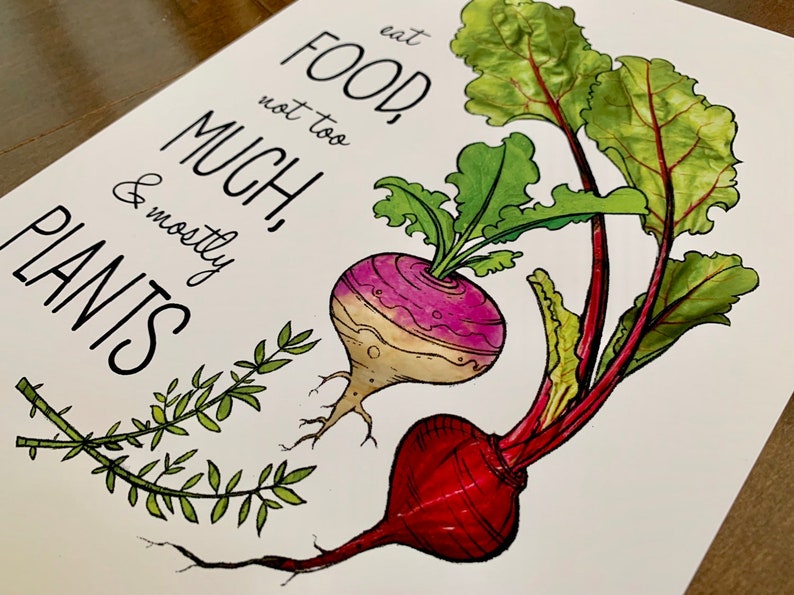 eat
FOOD,
not too
MUCH,
& mostly
PLANTS